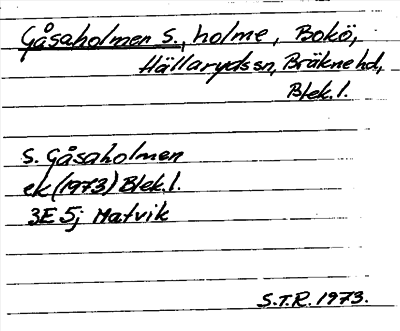 Gåsaholmen S., holme, Bokö,
Hällarydssn, Bräknehd,
Blek.l.
S. Gåsaholmen
ek (1973) Blek.l.
3E 5j Matvik
S.T.R. 1973.